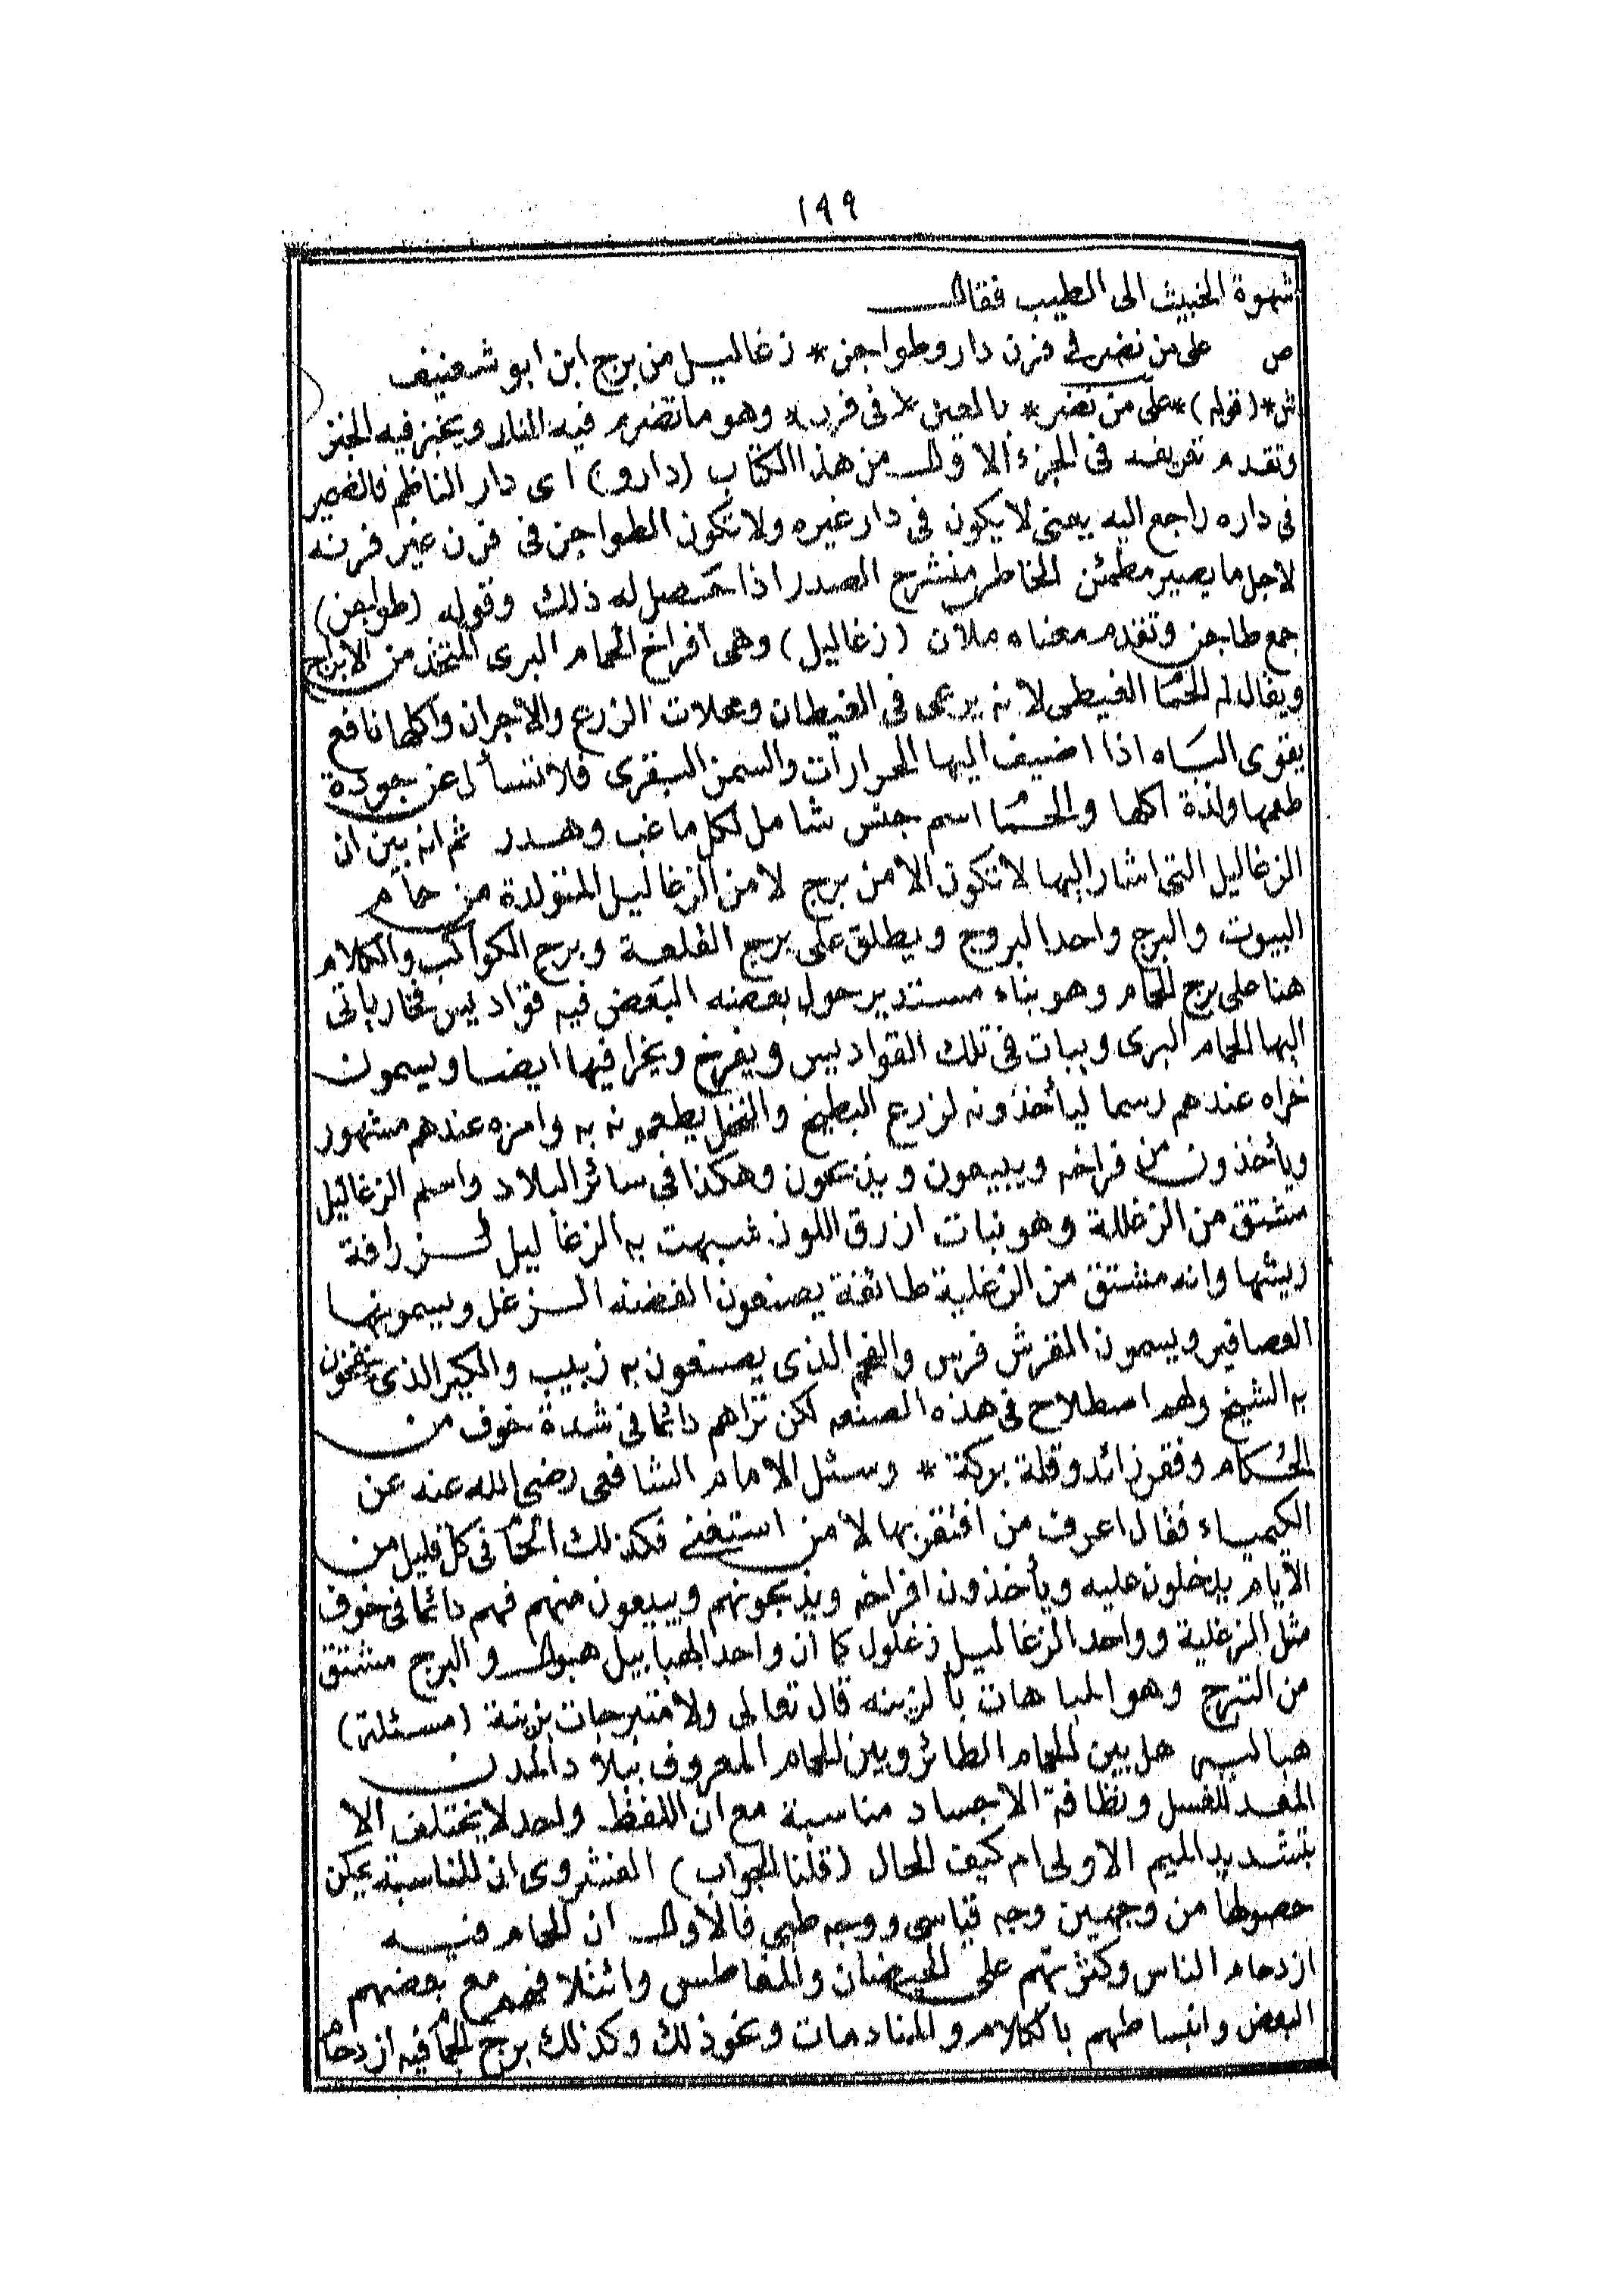 ١٩٩
شهوة الخبيث الى الطيب فقال
ص على من نضر في فرن دارو طواجن * زغاليل من برج ابن ابو شعنيف
ش * (قوله) * على من نضر * بالعين * فى فرن * وهو ما تضرم فيه النار ويخبز فيه الخبز
وتقدم تعريفه فى الجزء الاول من هذا الكتاب (دارو) اى دار الناظم فالضمير
فى داره راجع اليه يعنى لا يكون فى دار غيره ولا تكون الطواجن فى فرن غير فرنه
لاجل ما يصير مطمئن الخاطر منشرح الصدر اذا حصل له ذلك وقوله (طواجن)
جمع طاجن وتقدم معناه ملآن (زغاليل) وهى افراخ الحمام البرى المتخذ من الابراج
ويقال له الحمام الغيطى لانه يرعى فى الغيطان ومحلات الزرع والاجران واكلها نافع
يقوى الباه اذا اضيف اليها الحرارات والسمن البقرى فلا تسأل عن جودة
طعمها ولذة اكلها والحمام اسم جنس شامل لكل ما عب وهدر ثم انه بين ان
الزغاليل التى اشار اليها لا تكون الا من برج لا من الزغاليل المتولدة من حمام
البيوت والبرج واحد البروج ويطلق على برج القلعة وبرج الكواكب والكلام
هنا على برج الحمام وهو بناء مستدير حول بعضه البعض فيه قواديس فخار ياتى
اليها الحمام البرى ويبات فى تلك القواديس ويفرخ ويخرا فيها ايضا ويسمون
خراه عندهم رسما ليأخذونه لزرع البطيخ والنخل يطعمونه به وامره عندهم مشهور
ويأخذون من فراخه ويبيعون ويذبحون وهكذا فى سائر البلاد واسم الزغاليل
مشتق من الزغللة وهو نبات ازرق اللون شبهت به الزغاليل لزرافة
ريشها وانه مشتق من الزغلية طائفة يصنعون الفضه الزغل ويسمونها
العصافير ويسمون المقرش فرس والفحم الذى يصنعون به زبيب والكير الذى ينفخون
به الشيخ ولهم اصطلاح فى هذه الصنعه لكن تراهم دائما فى شدة خوف من
الحكام وفقر زائد وقلة بركة * وسئل الامام الشافعى رضى الله عنه عن
الكيمياء فقال اعرف من افتقر بها لا من استغنى فكذلك الحمام فى كل قليل من
الايام يدخلون عليه ويأخذون افراخه ويذبحونهم ويبيعون منهم فهم دائما فى خوف
مثل الزغلية وواحد الزغاليل زغلول كما ان واحد الهبابيل هبول والبرج مشتق
من التبرج وهو المباهات بالزينه قال تعالى ولا متبرجات بزينة (مسئلة)
هباليه هل بين الحمام الطائر وبين الحمام المعروف ببلاد المدن
المعد للغسل ونظافة الاجساد مناسبة مع ان اللفظ واحد لا يختلف الا
بتشديد الميم الاولى ام كيف الحال (قلنا الجواب) الفشروى ان المناسبة يمكن
حصولها من وجهين وجه قياسى ووجه طبى فالاول ان الحمام فيه
ازدحام الناس وكثرتهم على الحيضان والمغاطس وائتلافهم مع بعضهم
البعض وانبساطهم بالكلام والمنادمات ونحو ذلك وكذلك برج الحمام فيه ازدحام